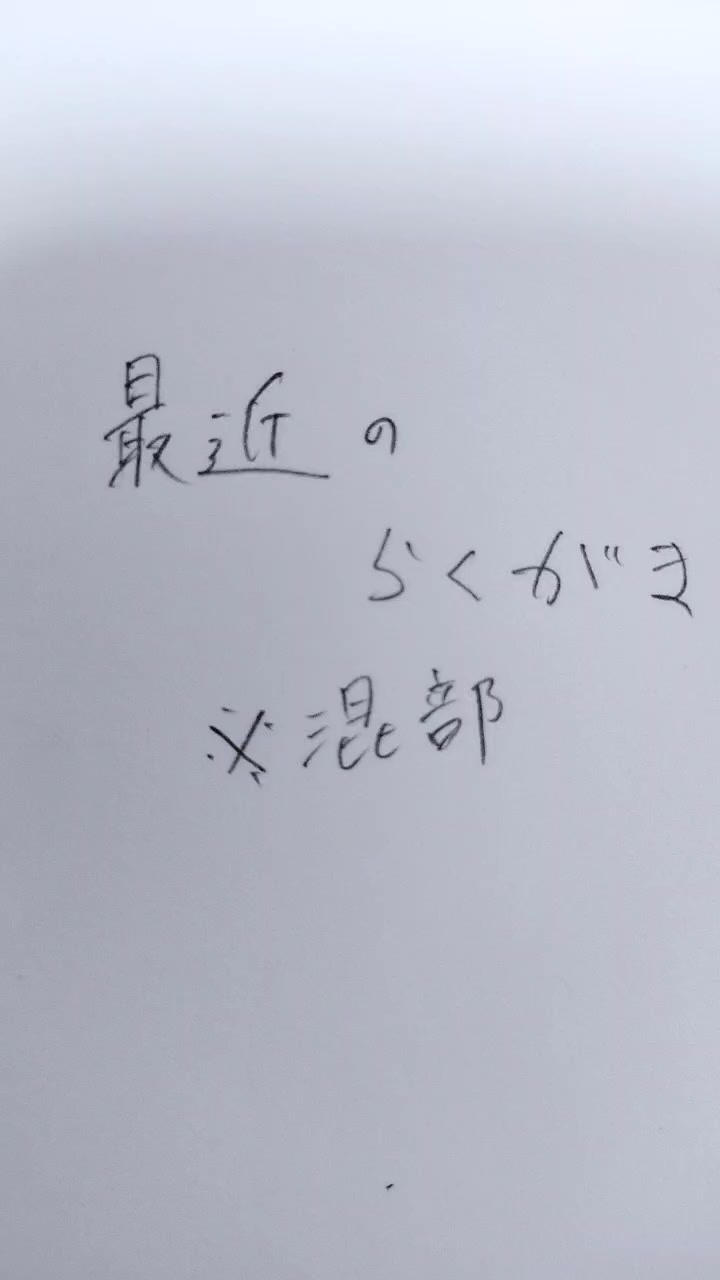 最近の
らくがき
※混部